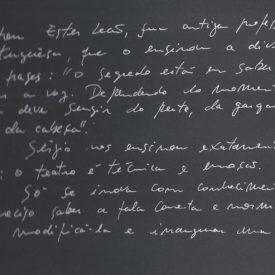 Ester Leão, sua antiga profess
ortuguesa, que o ensinou a div
frases: "O segredo está em saber
a voz. Dependendo do momen
deve surgir do peito, da gargan
da cabeça".
Sérgio nos ensinou exatamen
: o teatro é técnica e emoção.
Só se inova com conhecimen
reciso saber a fala correta e norm
modificá-la e inaugurar uma